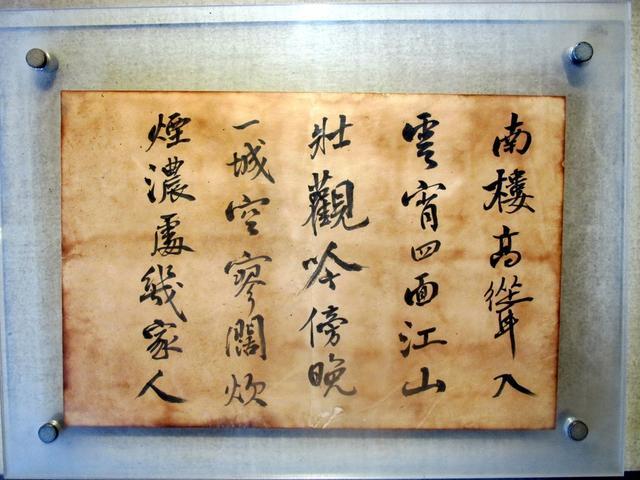 南樓高聳入
雲霄四面江山
壯觀吟傍晚
一城空寥闊炊
煙濃處幾家人